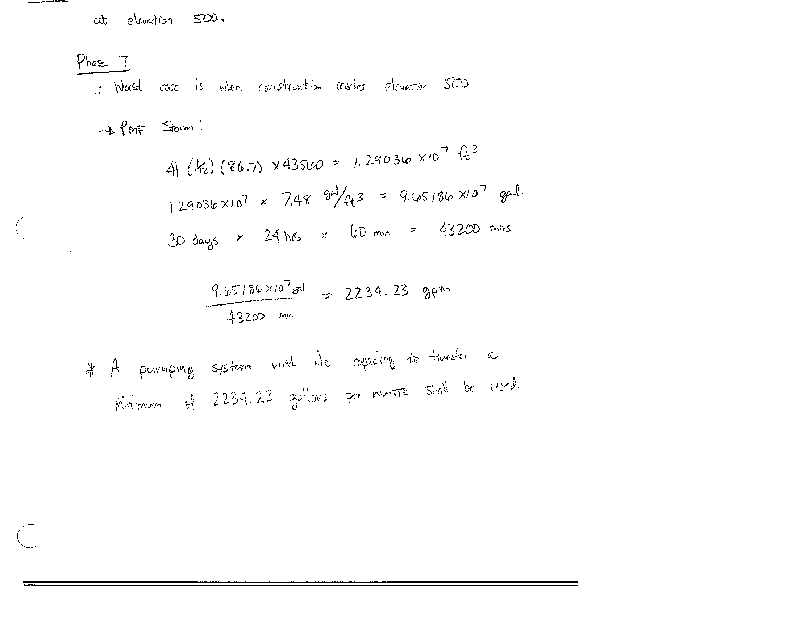 at elevation 5200.
Phase 7
∴ Worst case is when construction reaches elevation 5200
→ PMF Storm:
41 (1/12) (86.7) × 43560 = 1.29036 × 10^7 ft^3
1.29036 × 10^7 × 7.48 gal/ft^3 = 9.65186 × 10^7 gal.
30 days × 24 hrs × 60 min = 43200 mins
9.65186 × 10^7 gal / 43200 min = 2234.23 gpm
* A pumping system with the capacity to transfer a
minimum of 2234.23 gallons per minute should be used.